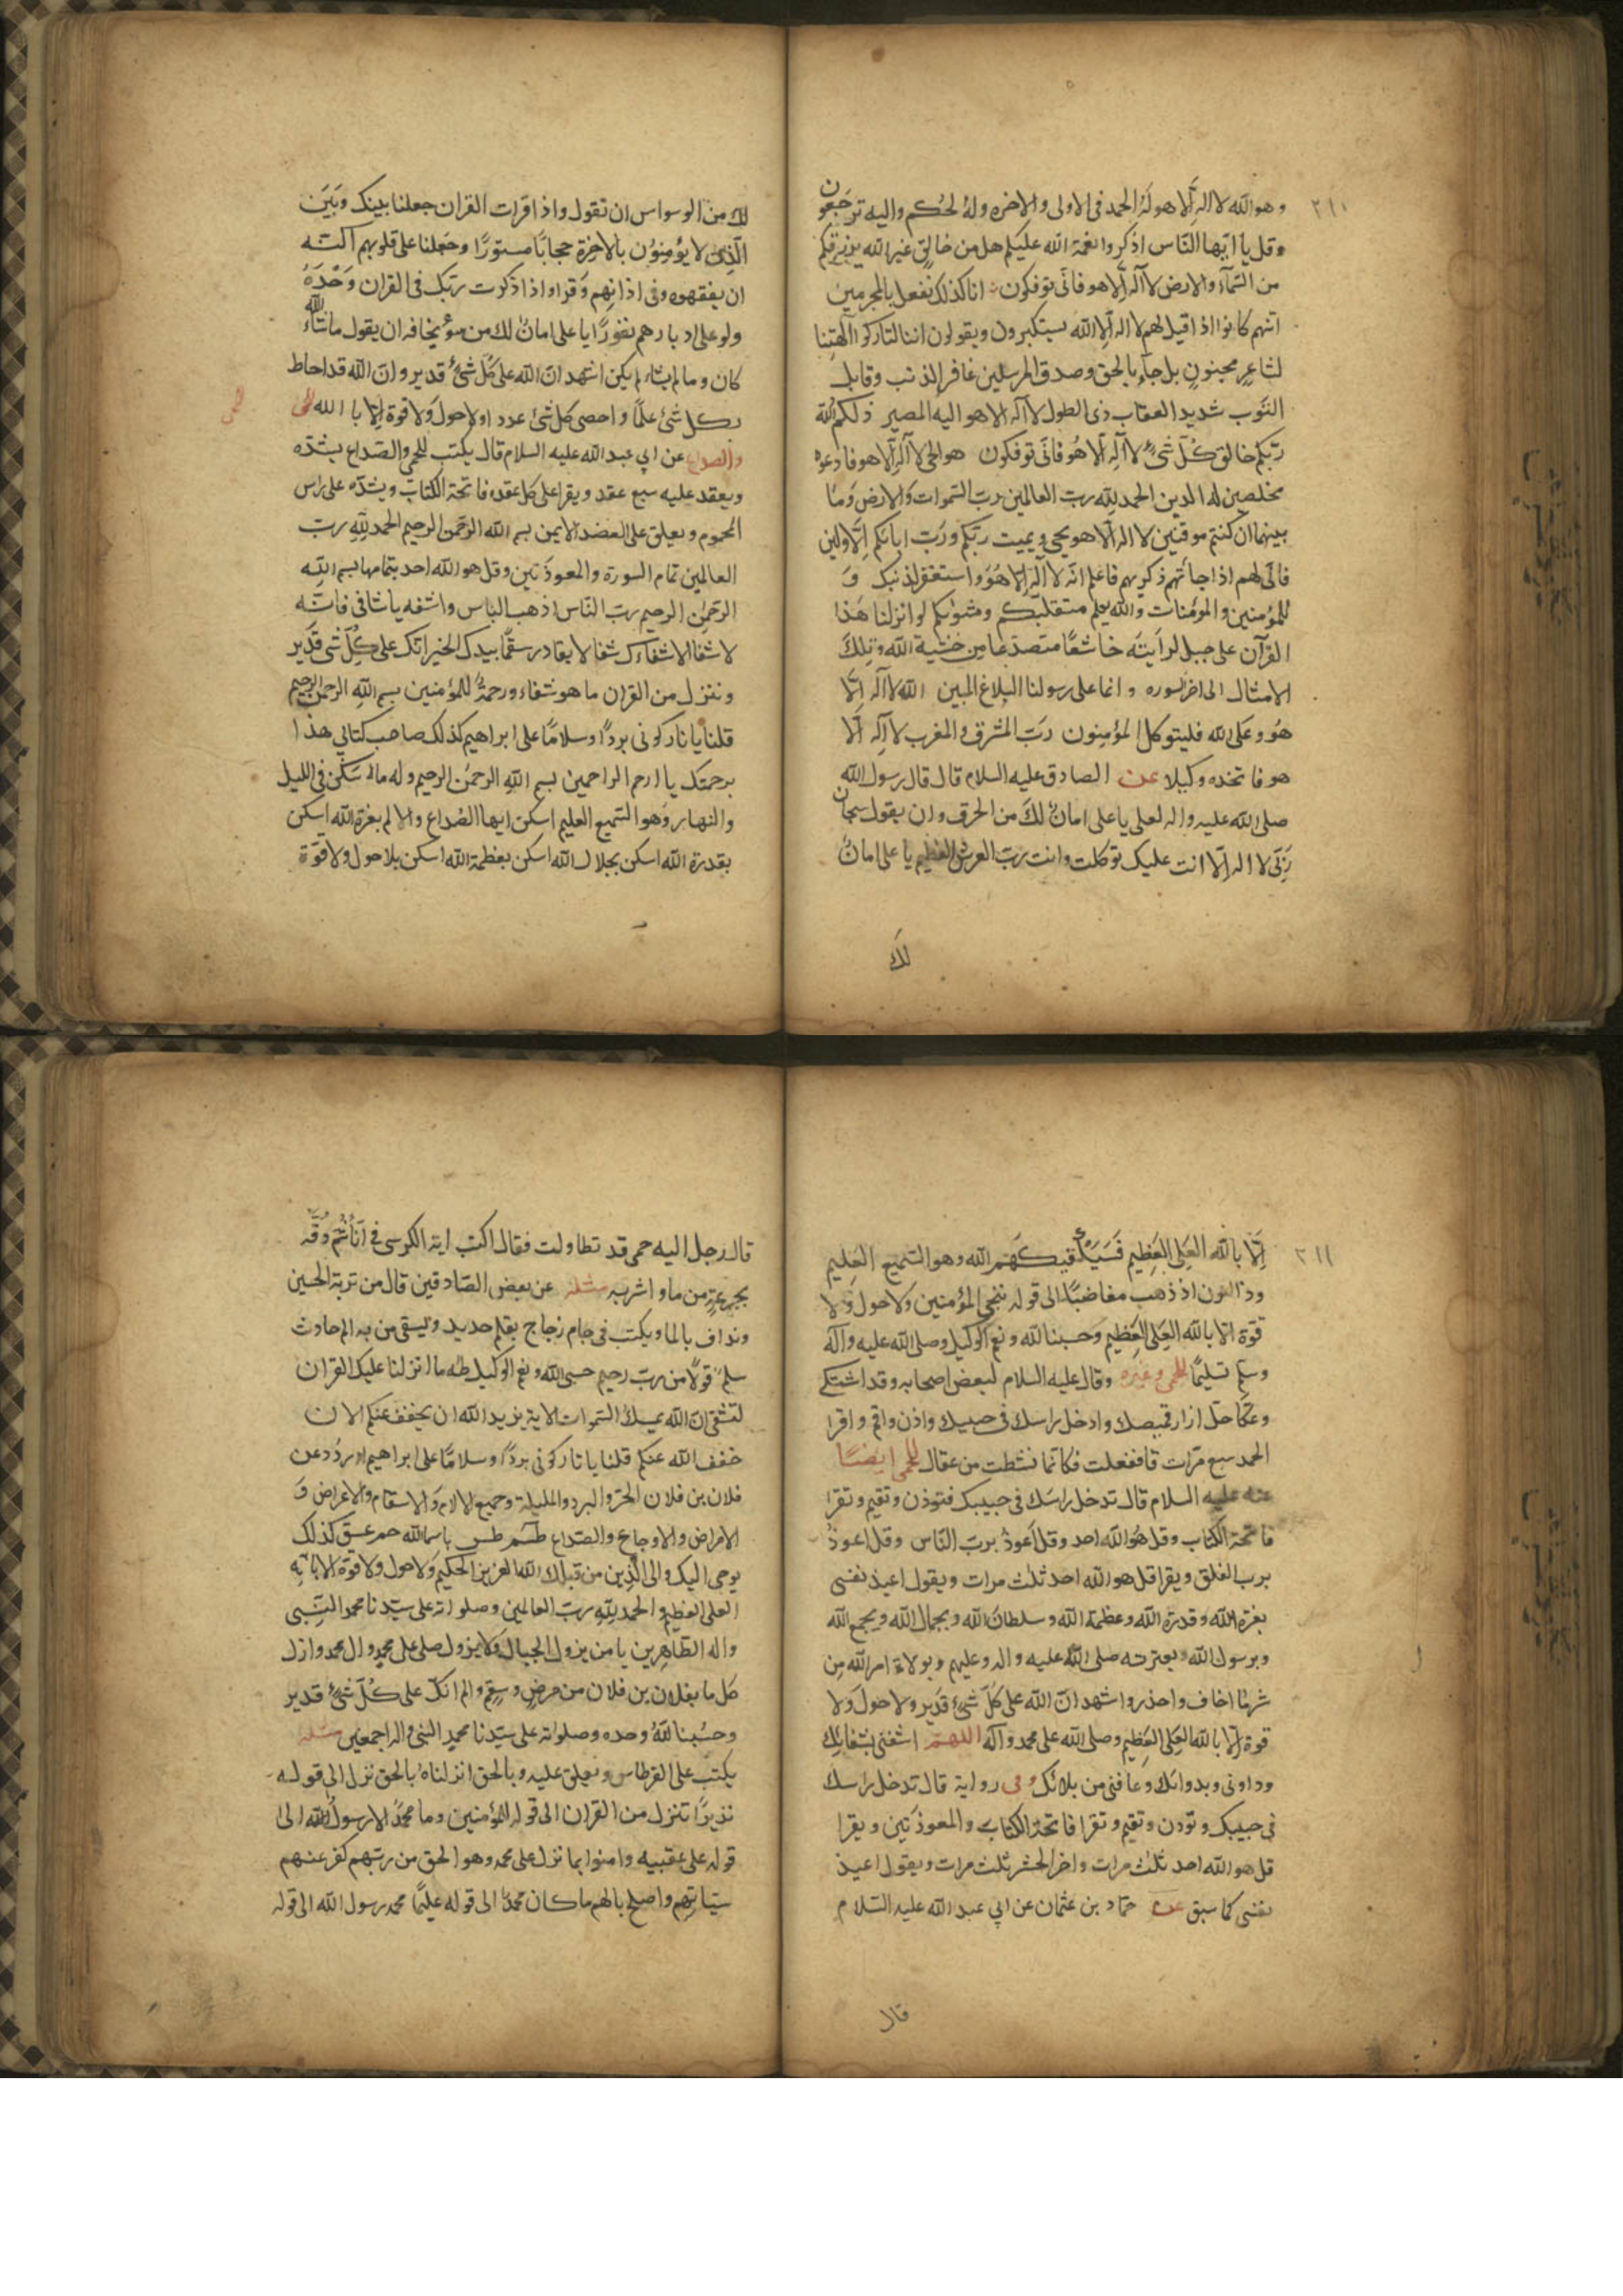 ٢١٠
وهو الله لا اله الا هو له الحمد فى الاولى والاخره وله الحكم واليه ترجعون
وقل يا ايها الناس اذكروا نعمة الله عليكم هل من خالق غير الله يرزقكم
من السمآء والارض لا اله الا هو فانى توفكون انا كذلك نفعل بالمجرمين
انهم كانوا اذا قيل لهم لا اله الا الله يستكبرون ويقولون اننا لتاركوا الهتنا
لشاعر مجنون بل جاء بالحق وصدق المرسلين غافر الذنب وقابل
التوب شديد العقاب ذى الطول لا اله الا هو اليه المصير ذلكم الله
ربكم خالق كل شئ لا اله الا هو فانى توفكون هو الحى لا اله الا هو فادعوه
مخلصين له الدين الحمد لله رب العالمين رب السموات والارض وما
بينهما ان كنتم موقنين لا اله الا هو يحيى ويميت ربكم ورب ابائكم الاولين
فانى لهم اذا جائتهم ذكريهم فاعلم انه لا اله الا هو واستغفر لذنبك و
للمؤمنين والمؤمنات والله يعلم متقلبكم ومثويكم لو انزلنا هذا
القرآن على جبل لرايته خاشعا متصدعا من خشية الله وتلك
الامثال الى اخر السوره وانما على رسولنا البلاغ المبين الله لا اله الا
هو وعلى الله فليتوكل المؤمنون رب المشرق والمغرب لا اله الا
هو فاتخذه وكيلا عن الصادق عليه السلام قال قال رسول الله
صلى الله عليه واله لعلى يا على امان لك من الحرق وان يقول سبحان
ربى لا اله الا انت عليك توكلت وانت رب العرش العظيم يا على امان
لك
لك من الوسواس ان تقول واذا قرات القران جعلنا بينك وبين
الذين لا يؤمنون بالاخرة حجابا مستورا وجعلنا على قلوبهم اكنه
ان يفقهوه وفى اذانهم وقرا واذا ذكرت ربك فى القران وحده
ولو على ادبارهم نفورا يا على امان لك من سوء يخافه ان يقول ما شاء الله
كان وما لم يشاء لم يكن اشهد ان الله على كل شئ قدير وان الله قد احاط
بكل شئ علما واحصى كل شئ عددا ولا حول ولا قوة الا با الله للحمى
للحمى
والصداع عن ابى عبد الله عليه السلام قال يكتب للحمى والصداع يشده
ويعقد عليه سبع عقد ويقرا على كل عقده فاتحة الكتاب ويشده على راس
المحموم ويعلق على العضد الايمن بسم الله الرحمن الرحيم الحمد لله رب
العالمين تمام السورة والمعوذتين وقل هو الله احد بتمامها بسم الله
الرحمن الرحيم رب الناس اذهب الباس واشفه يا شافى فانه
لا شفا الا شفاءك شفا لا يغادر سقما بيدك الخير انك على كل شى قدير
وننزل من القران ما هو شفاء ورحمة للمؤمنين بسم الله الرحمن الرحيم
قلنا يا نار كونى بردا وسلاما على ابراهيم كذلك صاحب كتابى هذا
برحمتك يا ارحم الراحمين بسم الله الرحمن الرحيم وله ما سكن فى الليل
والنهار وهو السميع العليم اسكن ايها الصداع والالم بعزة الله اسكن
بقدرة الله اسكن بجلال الله اسكن بعظمة الله اسكن بلا حول ولا قوة
٢١١
الا بالله العلى العظيم فسيكفيكهم الله وهو السميع العليم
وذا النون اذ ذهب مغاضبا الى قوله ننجى المؤمنين ولا حول ولا
قوة الا بالله العلى العظيم وحسبنا الله ونعم الوكيل وصلى الله عليه وآله
وسلم تسليما للحمى وغيره وقال عليه السلام لبعض اصحابه وقد اشتكى
وعكا حل ازار قميصك وادخل راسك فى جيبك واذن واقم واقرا
الحمد سبع مرات قال ففعلت فكانما نشطت من عقال للحمى ايضا
عنه عليه السلام قال تدخل راسك فى جيبك فتوذن وتقيم وتقرا
فاتحة الكتاب وقل هو الله احد وقل اعوذ برب الناس وقل اعوذ
برب الفلق ويقرا قل هو الله احد ثلث مرات ويقول اعيذ نفسى
بعزة الله وقدرة الله وعظمة الله وسلطان الله وبجمال الله وبجمع الله
وبرسول الله وبعترته صلى الله عليه واله وعليهم وبولاة امر الله من
شر ما اخاف واحذر واشهد ان الله على كل شئ قدير ولا حول ولا
قوة الا بالله العلى العظيم وصلى الله على محمد وآله اللهم اشفنى بشفائك
وداونى وبدوائك وعافنى من بلائك وفى رواية قال تدخل راسك
فى جيبك وتؤذن وتقيم وتقرا فاتحة الكتاب والمعوذتين ويقرا
قل هو الله احد ثلث مرات واخر الحشر ثلث مرات ويقول اعيذ
نفسى كما سبق عنه حماد بن عثمان عن ابى عبد الله عليه السلام
قال
قال رجل اليه حمى قد تطاولت فقال اكتب اية الكرسى فى اناء ثم دقه
بجرعة من ماء واشربه مثله عن بعض الصادقين قال من تربة الحسين
ونداف بالما ويكتب فى جام زجاج بقلم حديد ويسقى من به الم حادث
سلم قولا من رب رحيم حسبى الله ونعم الوكيل طه ما انزلنا عليك القران
لتشقى ان الله يمسك السموات الاية يريد الله ان يخفف عنكم الان
خفف الله عنكم قلنا يا نار كونى بردا وسلاما على ابراهيم اردد عن
فلان بن فلان الحر والبرد والمليلة وجميع الالام والاسقام والاعراض و
الامراض والاوجاع والصداع طسم طس باسم الله حم عسق كذلك
يوحى اليك والى الذين من قبلك الله العزيز الحكيم ولا حول ولا قوة الا بالله
العلى العظيم والحمد لله رب العالمين وصلواته على سيدنا محمد النبى
واله الطاهرين يا من يزول الجبال ولا يزول صلى على محمد وال محمد وازل
كل ما بفلان بن فلان من مرض وسقم والم انك على كل شئ قدير
وحسبنا الله وحده وصلواته على سيدنا محمد النبى واله اجمعين مثله
يكتب على القرطاس ويعلق عليه وبالحق انزلناه بالحق نزل الى قوله
نذيرا تنزل من القران الى قوله للمؤمنين وما محمد الا رسول الله الى
قوله على عقبيه وامنوا بما نزل على محمد وهو الحق من ربهم كفر عنهم
سيئاتهم واصلح بالهم ما كان محمد الى قوله عليما محمد رسول الله الى قوله